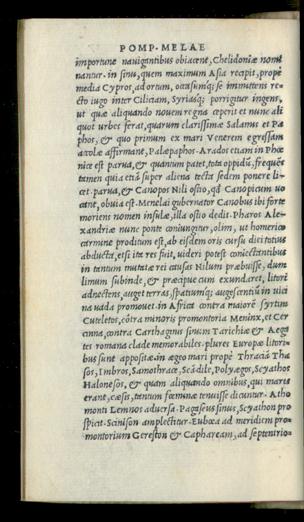 POMP. MELAE
importune nauigantibus obiacent, Chelidoniæ nomi
nantur. in sinu, quem maximum Asia recipit, propè
media Cypros, ad ortum, occasumq; se immittens re-
cto iugo inter Ciliciam, Syriasq; porrigitur ingens,
ut quæ aliquando nouem regna cæperit et nunc ali
quot urbes ferat, quarum clarissimæ Salamus et Pa
phos, & quo primum ex mari Venerem egressam
accolæ affirmant, Palæpaphos. Arados etiam in Phœ
nice est parua, & quantum patet, tota oppidū, frequēs
tamen quia etiā super aliena tecta sedem ponere li-
cet. parua, & Canopos Nili ostio, qd Canopicum uo
cant, obuia est. Menelai gubernator Canobus ibi forte
moriens nomen insulæ, illa ostio dedit. Pharos Ale-
xandriæ nunc ponte coniungitur, olim, ut homerico
carmine proditum est, ab eisdem oris cursu diei totius
abducta, et si ita res fuit, uideri potest coniectantibus
in tantum mutatæ rei causas Nilum præbuisse, dum
limum subinde, & præcipue cum exundaret, litori
adnectens, auget terras, spatiumq; augescentiū in uici
na uada promouet. in Africa contra maiorē Syrtim
Cuteletos, cōtra minoris promontoria Meninx, et Cer
cinna, contra Carthaginis sinum Tarichiæ & Aega
tes romana clade memorabiles. plures Europæ litori-
bus sunt appositæ. in ægæo mari propè Thraciā Tha
sos, Imbros, Samothrace, Scādile, Polyægos, Scyathos
Halonesos, & quam aliquando omnibus, qui mares
erant, cæsis, tantum fœminæ tenuisse dicuntur. Atho
monti Lemnos aduersa. Pagaseus sinus, Scyathon pro
spicit. Scinison amplectitur. Eubœa ad meridiem pro
montorium Gereston & Caphaream, ad septentrio-